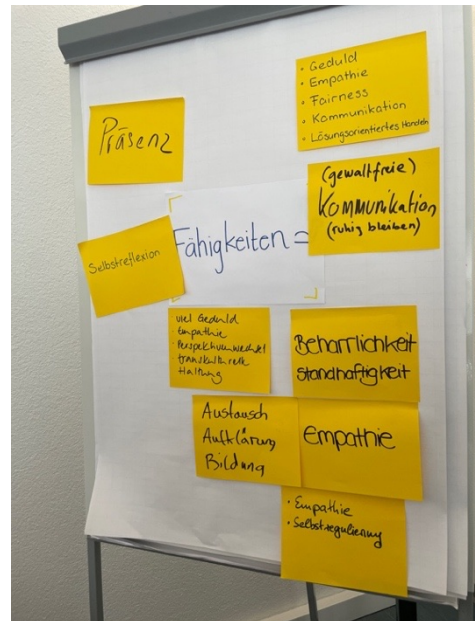 Präsenz
• Geduld
• Empathie
• Fairness
• Kommunikation
• Lösungsorientiertes Handeln
(gewaltfreie)
Kommunikation
(ruhig bleiben)
Selbstreflexion
Fähigkeiten =
viel Geduld
• Empathie
• Perspektivenwechsel
transkulturelle
Haltung
Beharrlichkeit
Standhaftigkeit
Austausch
Aufklärung
Bildung
Empathie
• Empathie
• Selbstregulierung